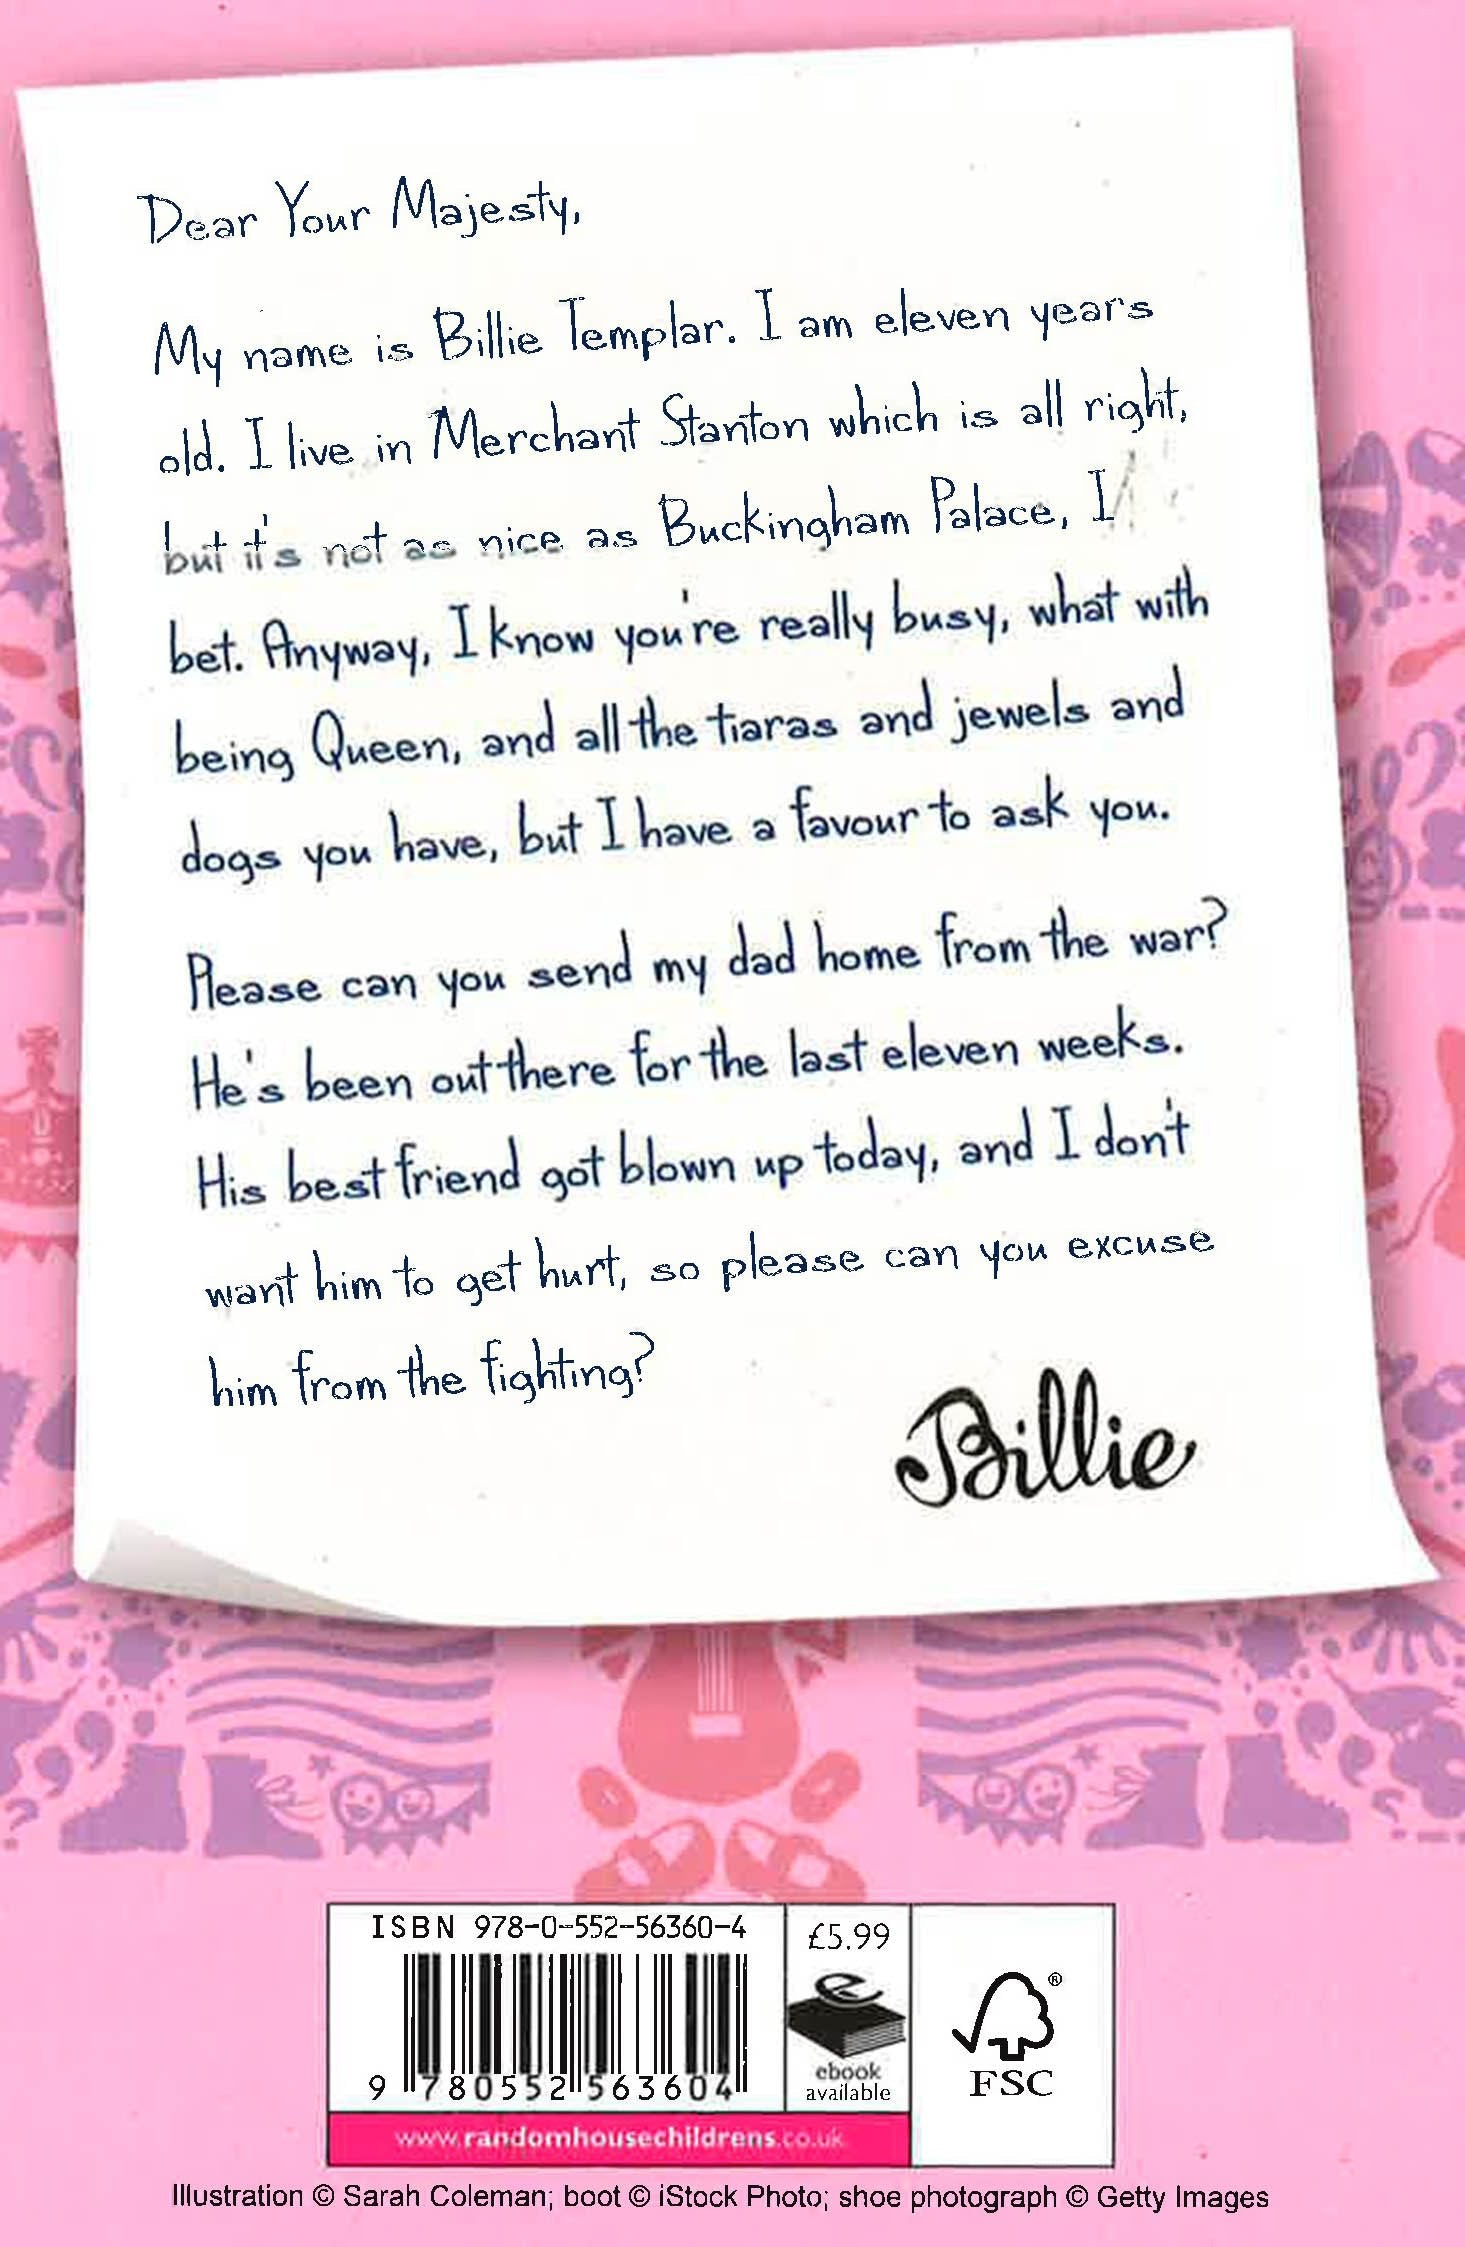 Dear Your Majesty,
My name is Billie Templar. I am eleven years
old. I live in Merchant Stanton which is all right,
but it's not as nice as Buckingham Palace, I
bet. Anyway, I know you're really busy, what with
being Queen, and all the tiaras and jewels and
dogs you have, but I have a favour to ask you.
Please can you send my dad home from the war?
He's been out there for the last eleven weeks.
His best friend got blown up today, and I don't
want him to get hurt, so please can you excuse
him from the fighting?
Billie
ISBN 978-0-552-56360-4
£5.99
9 780552 563604
ebook
available
®
FSC
www.randomhousechildrens.co.uk
Illustration © Sarah Coleman; boot © iStock Photo; shoe photograph © Getty Images